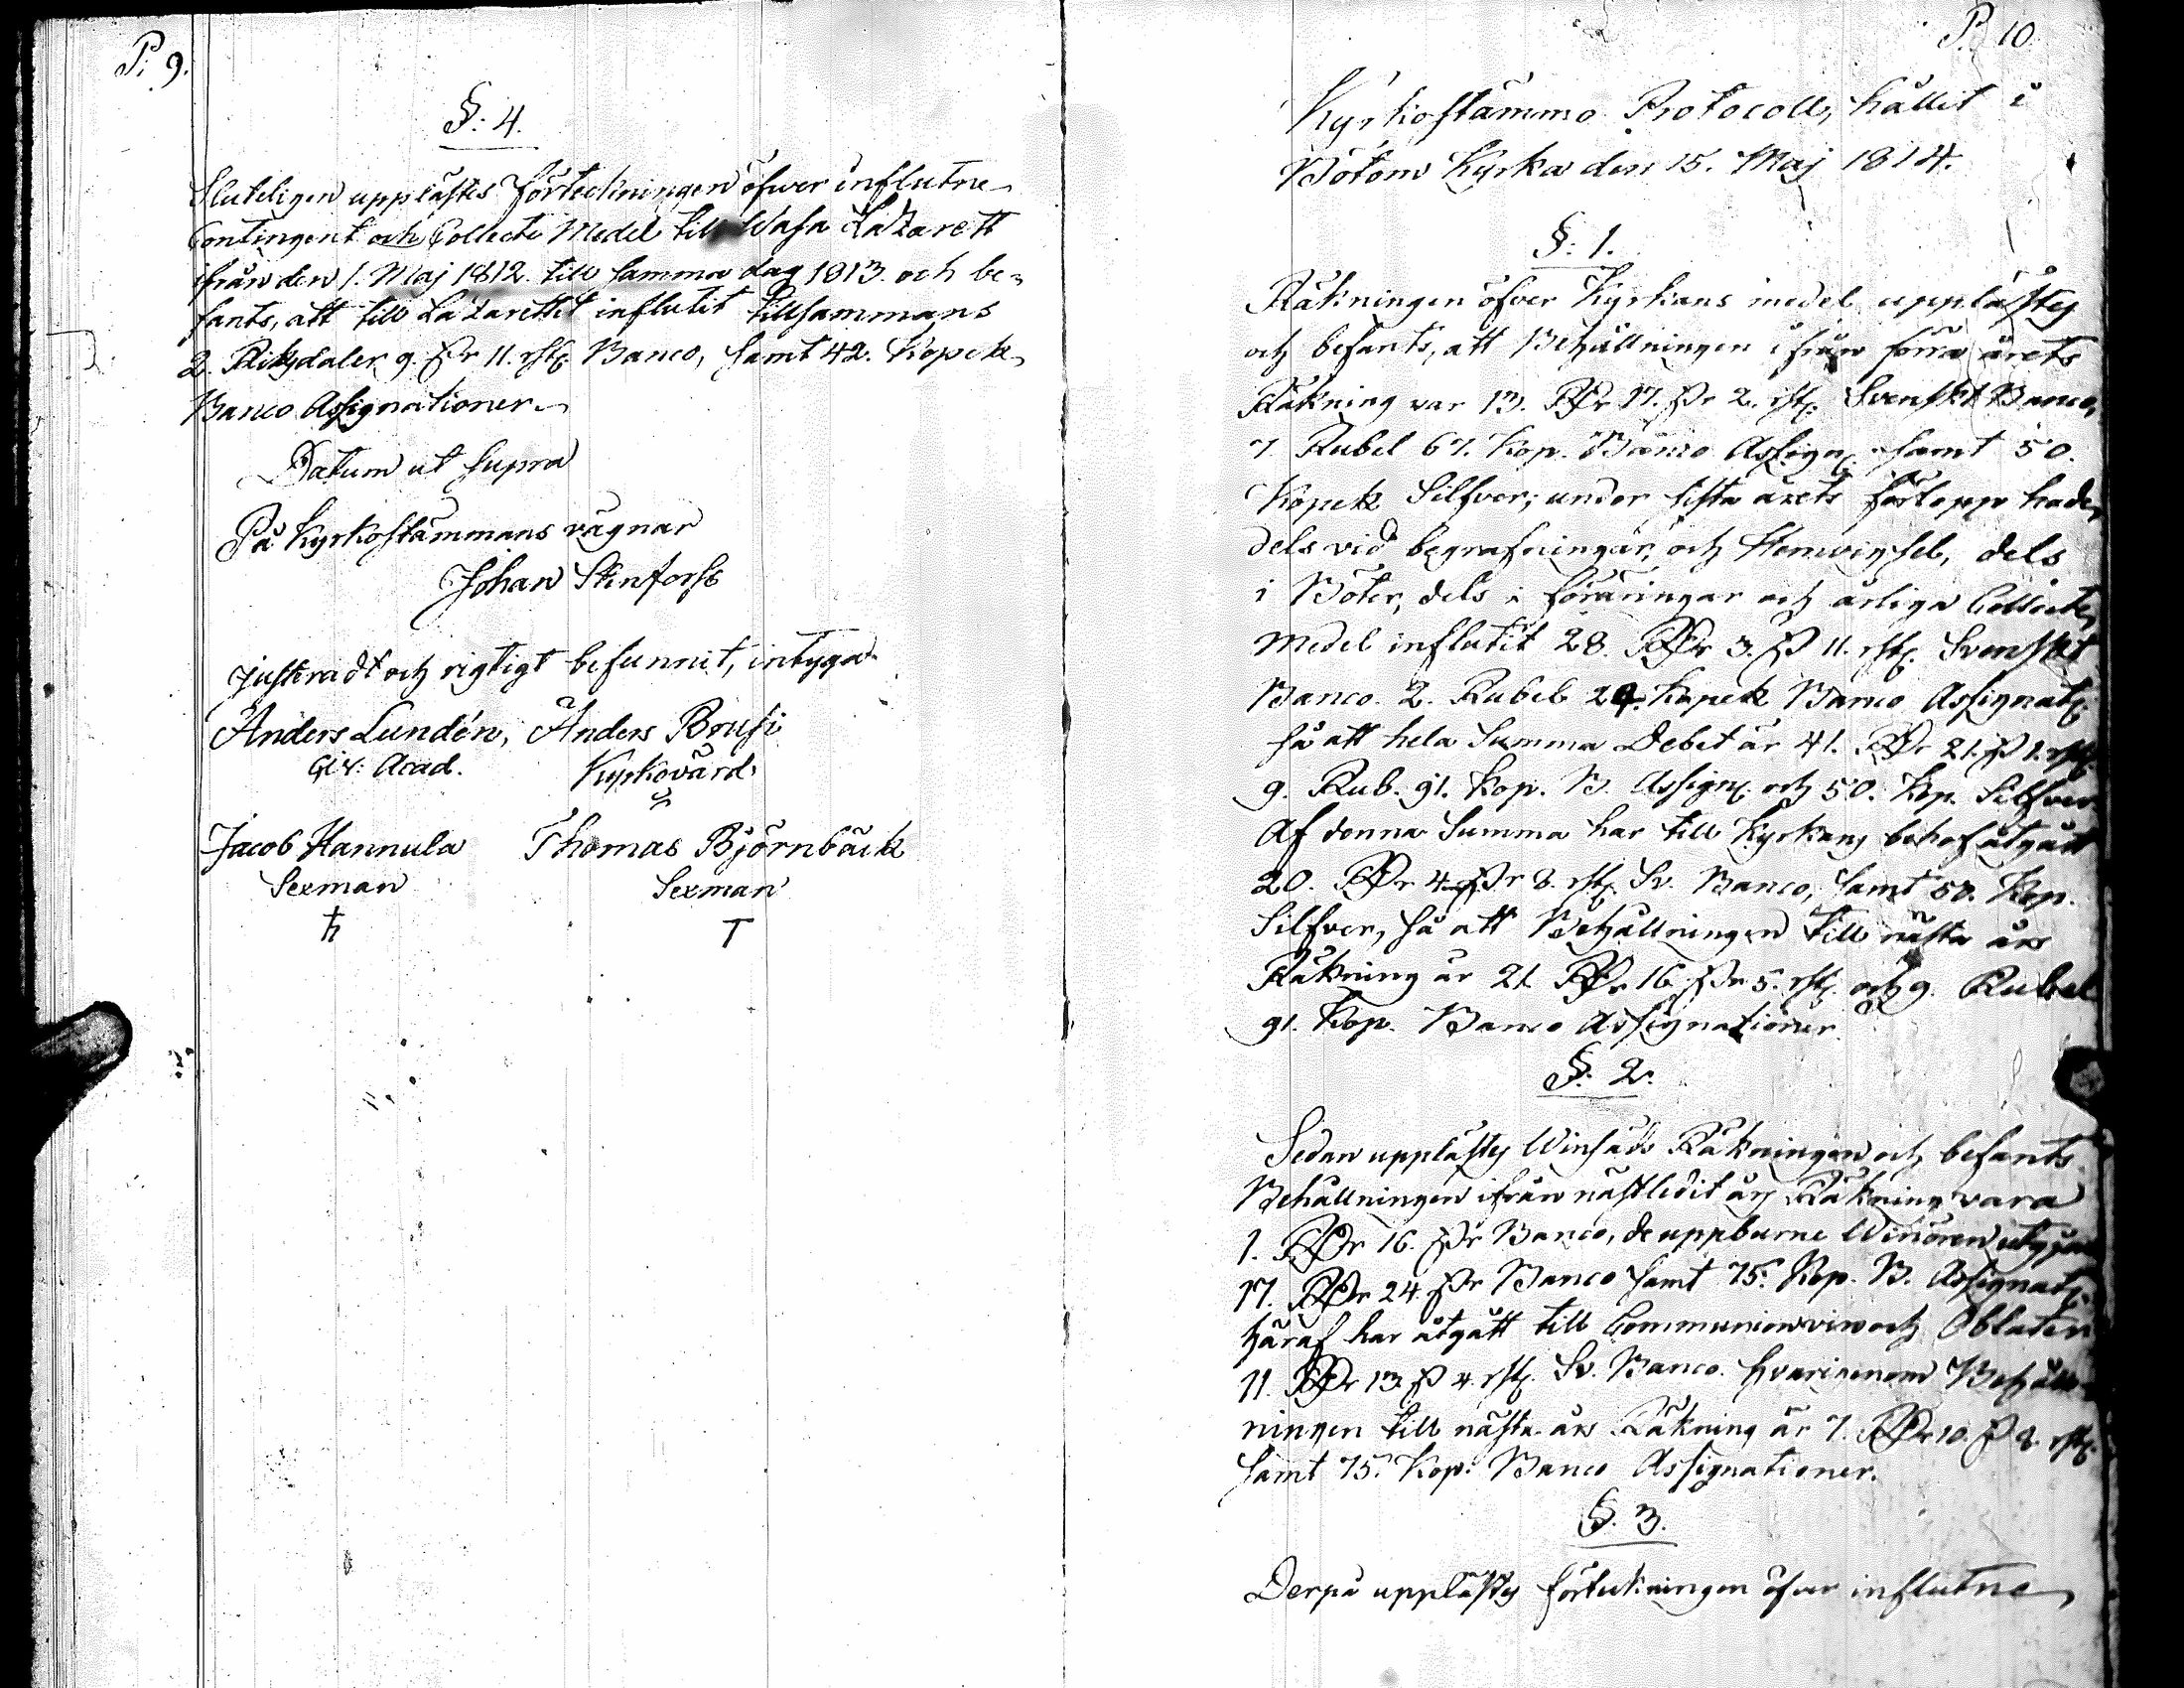 P. 9.
§. 4.
Sluteligen upplästes Förteckningen öfwer influtne
Contingent och Collecte Medel till Wasa Lazarett
ifrån den 1. Maj 1812. till samma dag 1813. och be-
fants, att till Lazarettet influtit tillsammans
2. Riksdaler 9. ßr 11. rst. Banco, samt 42. Kopek
Banco Assignationer
Datum ut supra
På Kyrkostämmans vägnar
Johan Stenforss
Justeradt och rigtigt befunnit, intyga
Anders Lundén, Anders Brusi
Acad. Kyrkovärd
Jacob Hannula Thomas Björnback
Sexman Sexman
P. 10
Kyrkostämmo Protocoll, hållit i
Bötom Kyrka den 15. Maj 1814.
§. 1.
Räkningen öfver Kyrkans medel upplästes
och befants, att Behållningen ifrån förra årets
Räkning var 13. RDr 17. ßr 2. rst. Svenskt Banco,
7 Rubel 67. Kop. Banco Assign. samt 50.
Kopek Silfver; under sista årets förlopp hade
dels vid begrafningar och Hemvigsel, dels
i Böter, dels i föräringar och årliga Collecte
Medel influtit 28. RDr 3. ß 11. rst. Svenskt
Banco. 2. Rubel 24. Kopek Banco Assignat.
så att hela Summa Debet är 41. RDr 21. ß 1. rst.
9. Rub. 91. Kop. B. Assign. och 50. Kop. Silfver
Af denna Summa har till Kyrkans behof åtgått
20. RDr 4 ßr 8. rst. Sv. Banco, samt 50. Kop.
Silfver, så att Behållningen till nästa års
Räkning är 21 RDr 16 ßr 5. rst. och 9. Rubel
91. Kop. Banco Assignationer.
§. 2.
Sedan upplästes Winsäds Räkningen och befants
Behållningen ifrån nästledit års Räkning vara
1. RDr 16. ßr Banco, de uppburne Winören utgjöra
17. RDr 24 ßr Banco samt 75. Kop. B. Assignat.
häraf har åtgått till Communion vin och Oblater
11. RDr 13. ß 4. rst. Sv. Banco. hvarigenom Behåll-
ningen till nästa års Räkning är 7. RDr 10. ß 8 rst.
samt 75. Kop. Banco Assignationer.
§. 3.
Derpå upplästes förteckningen öfver influtne